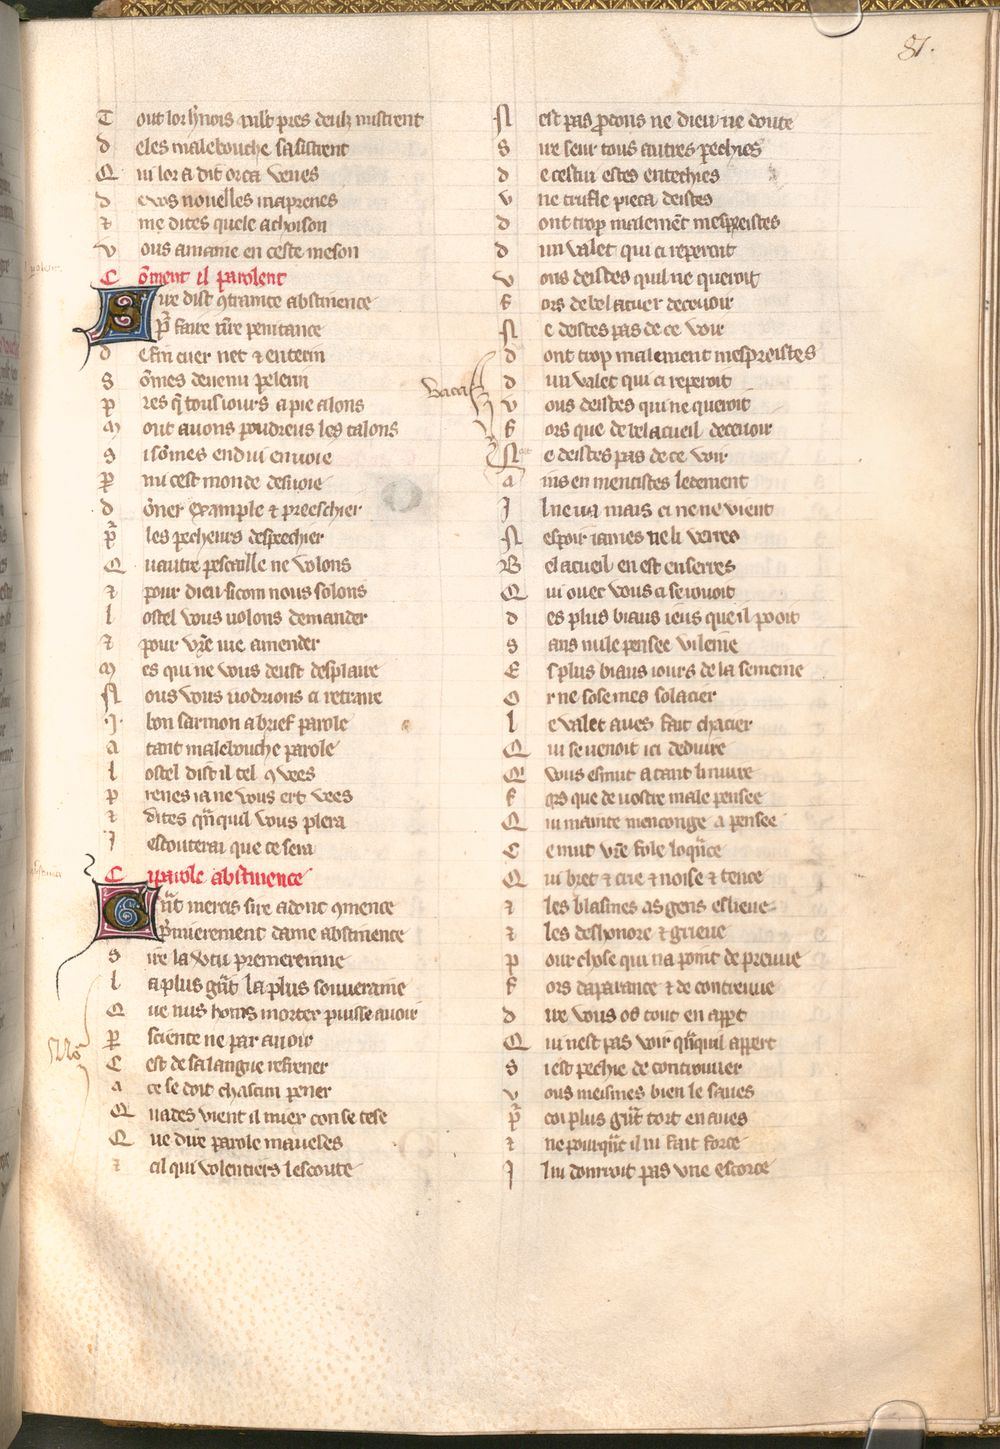 81.
Tout lor hnois mlt pres deulz mistrent
deles malebouche sasistrent
Qui lor a dit orca venes
de vos nouelles maprenes
⁊ me dites quele achoison
Vous amaine en ceste meson
Cōment il parolent
Sire dist ꝯtrainte abstinence
Pͬ faire nr̄e penitance
de fin cuer net ⁊ enterin
Sōmes deuenu pelerin
Pres q̄ tousiours a pie alons
Mout auons poudreus les talons
Si sōmes endui enuoie
Ꝑ mi cest monde desuoie
dōner example ⁊ preeschier
Pͬ les pecheurs despechier
Quautre pescaille ne volons
⁊ pour dieu sicom nous solons
lostel vous uolons demander
⁊ pour vr̄e uie amender
Mes qui ne vous deust desplaire
Nous vous uodrions ci retraire
.I. bon sarmon a brief parole
atant malebouche parole
lostel dist il tel ꝯ vees
prenes ia ne vous ert vees
⁊ dites qñquil vous plera
Iescouterai que ce sera
Ci parole abstinence
Gñt mercis sire adont ꝯmence
Pͥmierement dame abstinence
Sire la vtu premerenne
la plus gñt la plus souueraine
Que nus homs mortex puisse auoir
Ꝑ science ne par auoir
Cest de sa langue refrener
a ce se doit chascun pener
Quades vient il miex con se tese
Que dire parole mauuese
⁊ cil qui volentiers lescoute
Nest pas ꝓdons ne dieu ne doute
Sire seur tous autres pechies
de cestui estes entechies
Vne trufle pieca deistes
dont trop malemēt mespreistes
dun valet qui ci reperoit
Vous deistes quil ne queroit
Fors de bel acuer deceuoir
Ne deistes pas de ce voir
dont trop malement mespreistes
vaca
dun valet qui ci reperoit
Vous deistes qui ne queroit
Fors que de bel acueil deceuoir
Ne deistes pas de ce voir
ains en mentistes ledement
Il ne ua mais ci ne ne vient
Nespoir iames ne li verres
Bel acueil en est enserres
Qui ouec vous ci se iouoit
des plus biaus ieus que il pooit
Sans nule pensee vilenie
Es plus biaus iours de la semeine
Or ne sose mes solacier
le valet aues fait chacier
Qui se uenoit ici deduire
Qui vous esmut a tant li nuire
Fors que de uostre male pensee
Qui mainte menconge a pensee
Ce mut vr̄e fole loqñce
Qui bret ⁊ crie ⁊ noise ⁊ tence
⁊ les blasmes as gens eslieue
⁊ les deshonore ⁊ grieue
pour chose qui na point de preuue
Fors daparance ⁊ de contreuue
dire vous os tout en apꝑt
Qui nest pas voir qñquil appert
Si est pechie de controuuer
vous meismes bien le saues
Pͬcoi plus gñt tort en aues
⁊ ne pourqñt il ni fait force
Il ni donroit pas vne escorce